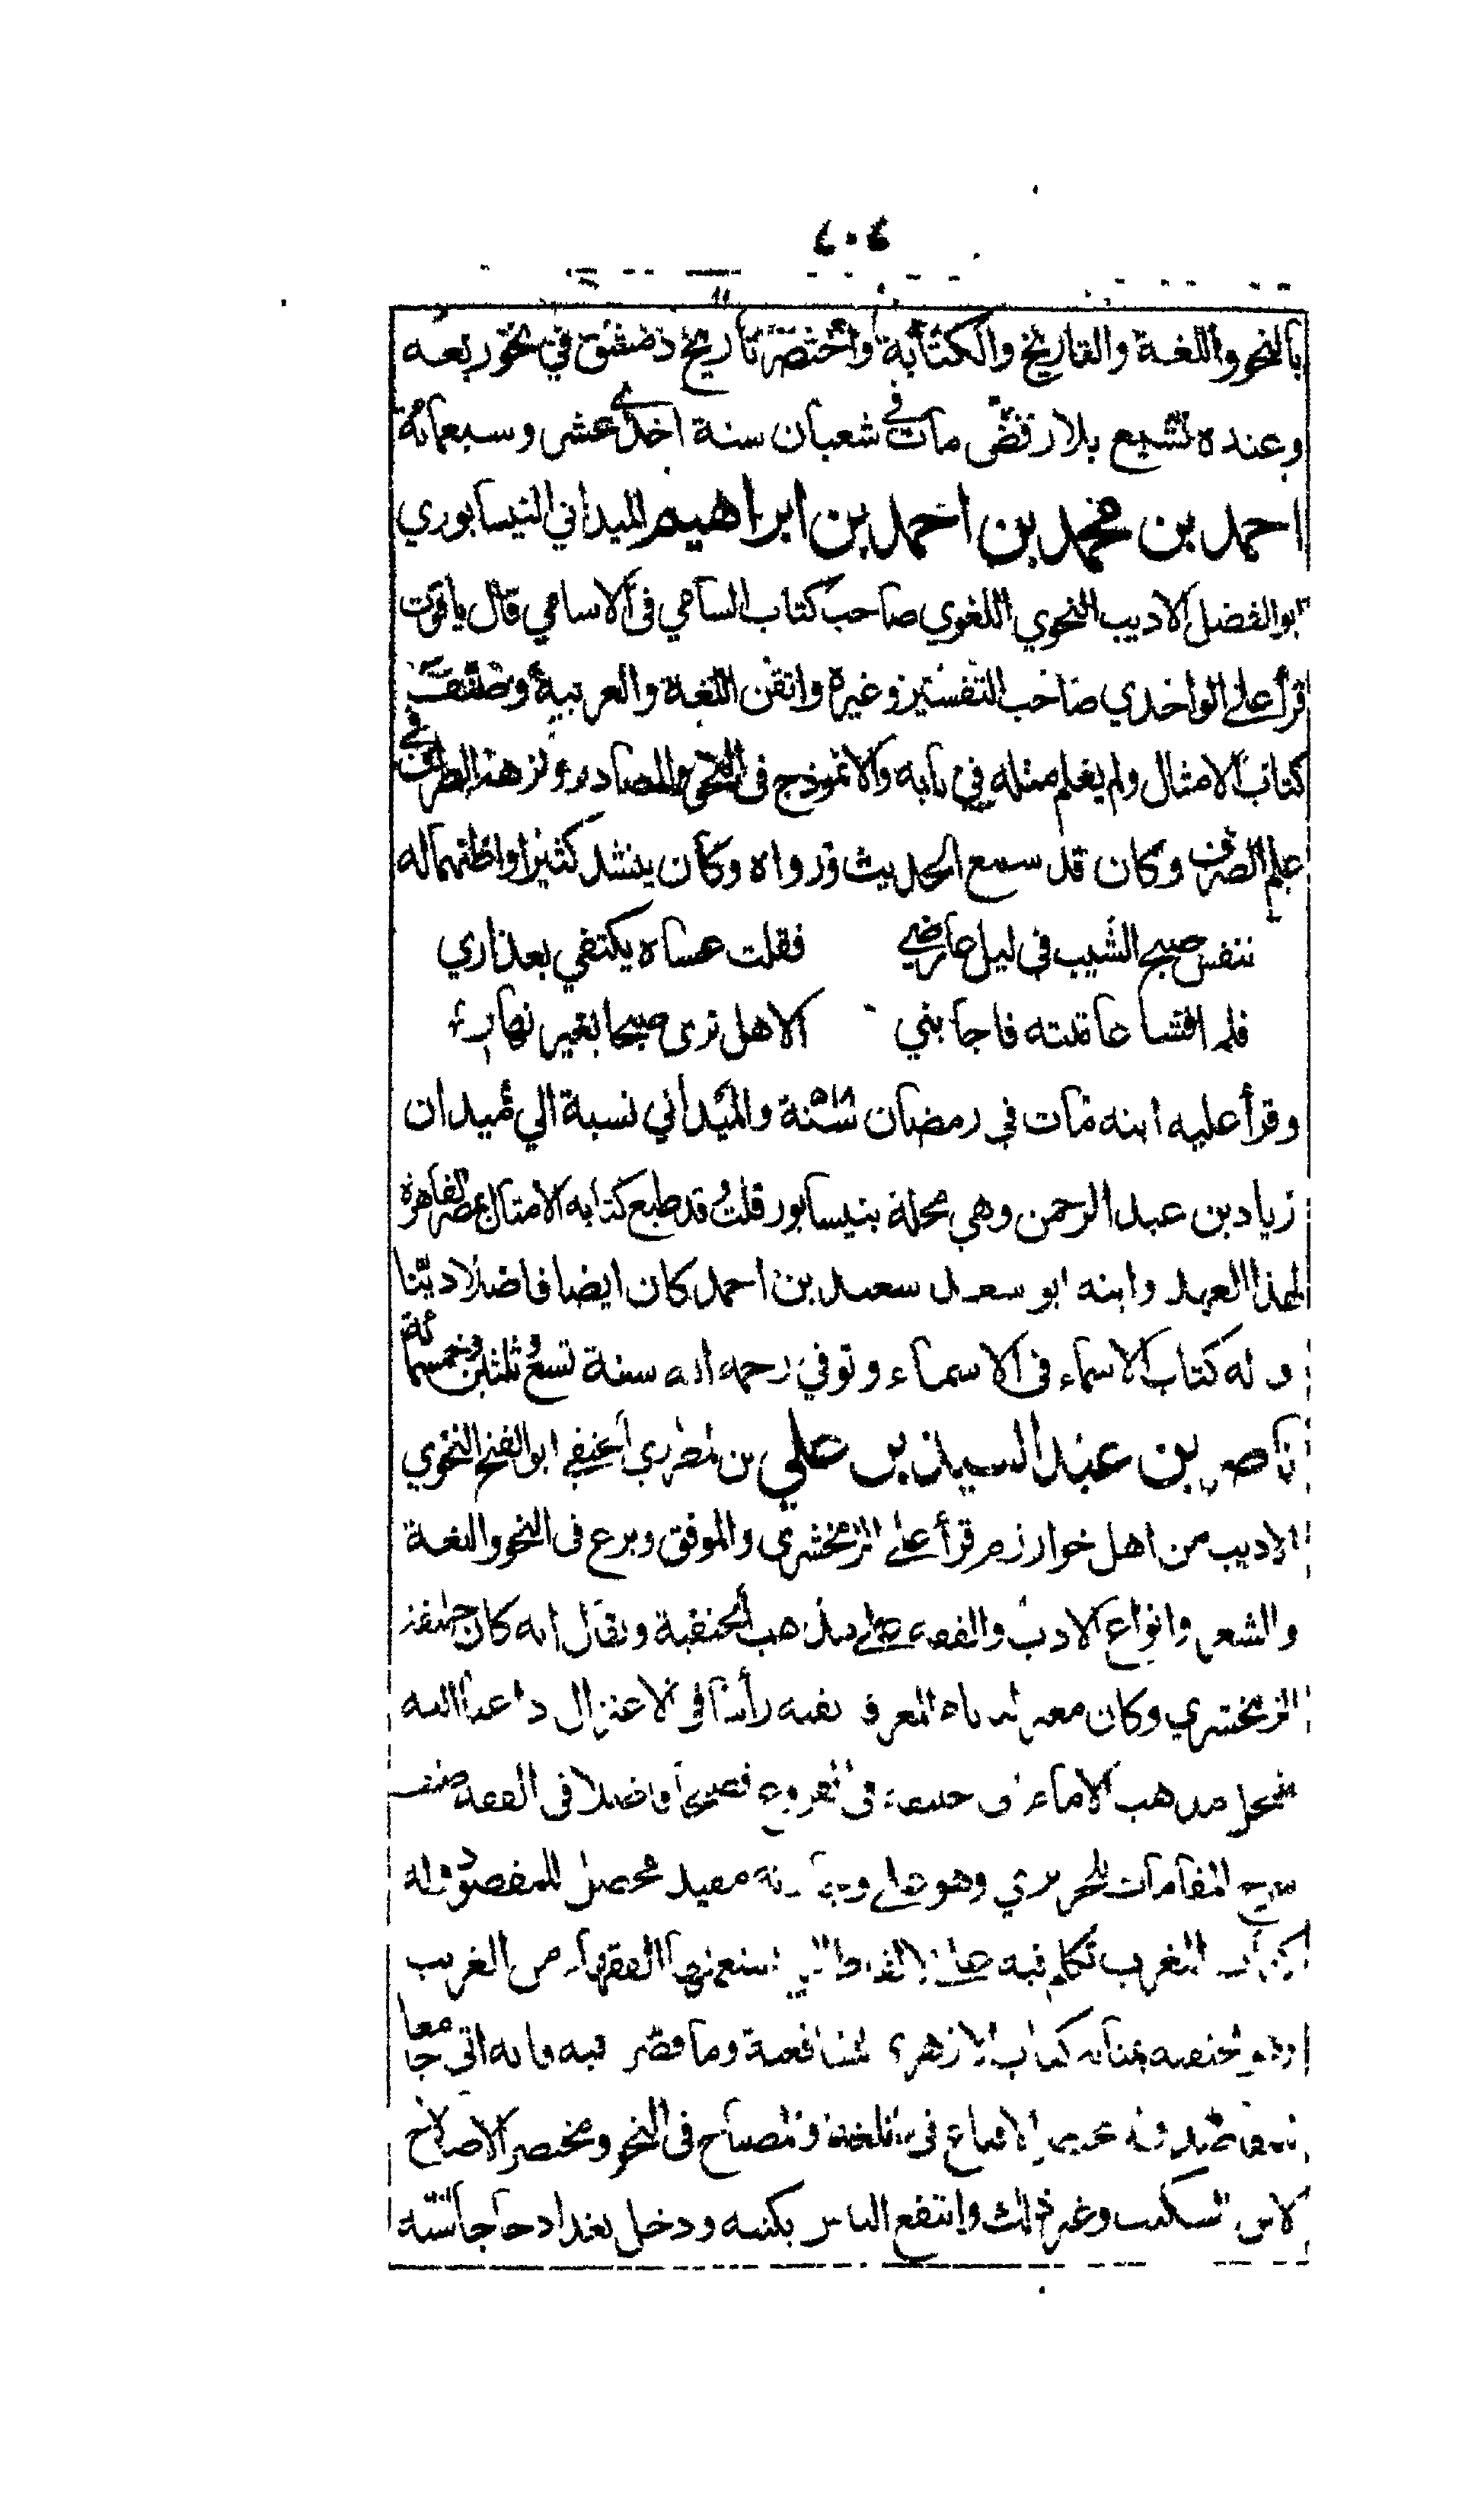 ٤٠٤
بالنحو واللغة والتاريخ والكتابة واختصر تاريخ دمشق في نحو ربعه
وعنده تشيع بلا رفض مات في شعبان سنة احدى عشر وسبعمائة
احمد بن محمد بن احمد بن ابراهيم الميداني النيسابوري
ابو الفضل الاديب النحوي اللغوي صاحب كتاب السامي في الاسامي قال ياقوت
قرأ على الواحدي صاحب التفسير وغيره واتقن اللغة والعربية وصنف
كتاب الامثال ولم يعلم مثله في بابه والانموذج في النحو والمصادر ونزهة الطرف في
علم الصرف وكان قد سمع الحديث ورواه وكان ينشد كثيرا واظنهما له
تنفس صبح الشيب في ليل عارضي فقلت عساه يكتفي بعذاري
فلما افشا عاتبته فاجابني الا هل ترى صبحا بغير نهار
وقرأ عليه ابنه مات في رمضان سنة ٥١٨ والميداني نسبة الي ميدان
زياد بن عبد الرحمن وهي محلة بنيسابور قلت قد طبع كتابه الامثال بمصر القاهرة
لهذا العهد وابنه ابو سعد سعيد بن احمد كان ايضا فاضلا دينا
وله كتاب الاسماء في الاسماء وتوفي رحمه الله سنة تسع وثلثين وخمسمائة
ناصر بن عبد السيد بن علي بن المطرزي الحنفي ابو الفتح النحوي
الاديب من اهل خوارزم قرأ على الزمخشري والموفق وبرع في النحو واللغة
والشعر وانواع الادب والفقه على مذهب الحنفية ويقال انه كان خليفة
الزمخشري وكان معتزليا المعرفة بفنه رأسا في الاعتزال داعيا اليه
ينتحل مذهب الامام ابي حنيفة في الفروع فصيحا فاضلا في الفقه صنف
شرح المقامات للحريري وهو على وجازته مفيد محصل للمقصود وله
كتاب المغرب تكلم فيه على الالفاظ التي يستعملها الفقهاء من الغريب
وهو للحنفية بمثابة كتاب الازهري للشافعية وما قصر فيه فانه اتى جامعا
للمقاصد وله الاقناع في اللغة والمصباح في النحو ومختصر الاصلاح
لابن السكيت وغير ذلك وانتفع الناس بكتبه ودخل بغداد حاجا سنة